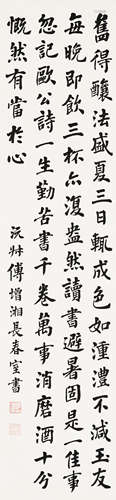 舊得釀法盛夏三日輒成色如湩澧不減玉友
每晚即飲三杯亦復盎然讀書避暑固是一佳事
忽記歐公詩一生勤苦書千卷萬事消磨酒十分
慨然有當於心
沅叔傅增湘長春室書